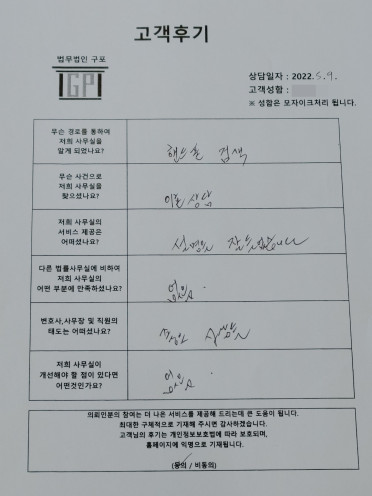 고객후기
법무법인 구포
GP
상담일자 : 2022.5.9.
고객성함 :
※ 성함은 모자이크처리 됩니다.
무슨 경로를 통하여
저희 사무실을
알게 되었나요?
핸드폰 검색
무슨 사건으로
저희 사무실을
찾으셨나요?
이혼 상담
저희 사무실의
서비스 제공은
어떠셨나요?
설명도 잘
다른 법률사무실에 비하여
저희 사무실의
어떤 부분에 만족하셨나요?
없음.
변호사,사무장 및 직원의
태도는 어떠셨나요?
저희 사무실이
개선해야 할 점이 있다면
어떤것인가요?
없음.
의뢰인분의 참여는 더 나은 서비스를 제공해 드리는데 큰 도움이 됩니다.
최대한 구체적으로 기재해 주시면 감사하겠습니다.
고객님의 후기는 개인정보보호법에 따라 보호되며,
홈페이지에 익명으로 기재됩니다.
(동의 / 비동의)